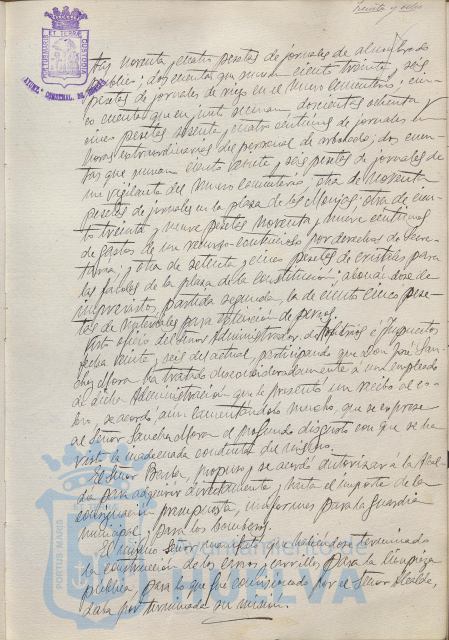 Treinta y ocho
PORTUS MARIS ET TERRE CUSTODIA
AYUNT. CONSTNAL. DE HUELVA
noventa y cuatro pesetas de jornales de alumbrado
público; dos cuentas que suman ciento treinta y seis
pesetas de jornales de riego en el nuevo cementerio; cin-
co cuentas que en junto suman doscientas ochenta y
cinco pesetas sesenta y cuatro céntimos de jornales en
horas extraordinarias del personal de arbolado; dos cuen-
tas que suman ciento veinte y seis pesetas de jornales de
un vigilante del nuevo cementerio; otra de noventa
pesetas de jornales en la plaza de las Monjas; otra de cien-
to treinta y nueve pesetas noventa y nueve céntimos
de gastos de un recurso contencioso por derechos de Secre-
taría; y otra de setenta y cinco pesetas de cristales para
las farolas de la plaza de la Constitución; abonándose de
imprevistos, partida segunda, la de ciento cinco pese-
tas de materiales para extinción de perros.
Visto oficio del Señor Administrador de Arbitrios é Impuestos
fecha veinte y seis del actual, participando que Don José San-
chez Mora ha tratado desconsideradamente á un empleado
de dicha Administración que le presentó un recibo al co-
bro, se acordó, aun lamentándolo mucho, que se exprese
al Señor Sanchez Mora el profundo disgusto con que se ha
visto la inadecuada conducta del mismo.
El Señor Barba, propuso y se acordó autorizar á la Alcal-
día para adquirir directamente y hasta el importe de la
consignación presupuesta, uniformes para la Guardia
municipal y para los bomberos.
El mismo Señor, manifestó que habiéndose terminado
la construcción de los carros y carrillos para la limpieza
pública, para lo que fué comisionado por el Señor Alcalde,
daba por terminada su misión.
PORTUS MARIS
Ayuntamiento de
HUELVA